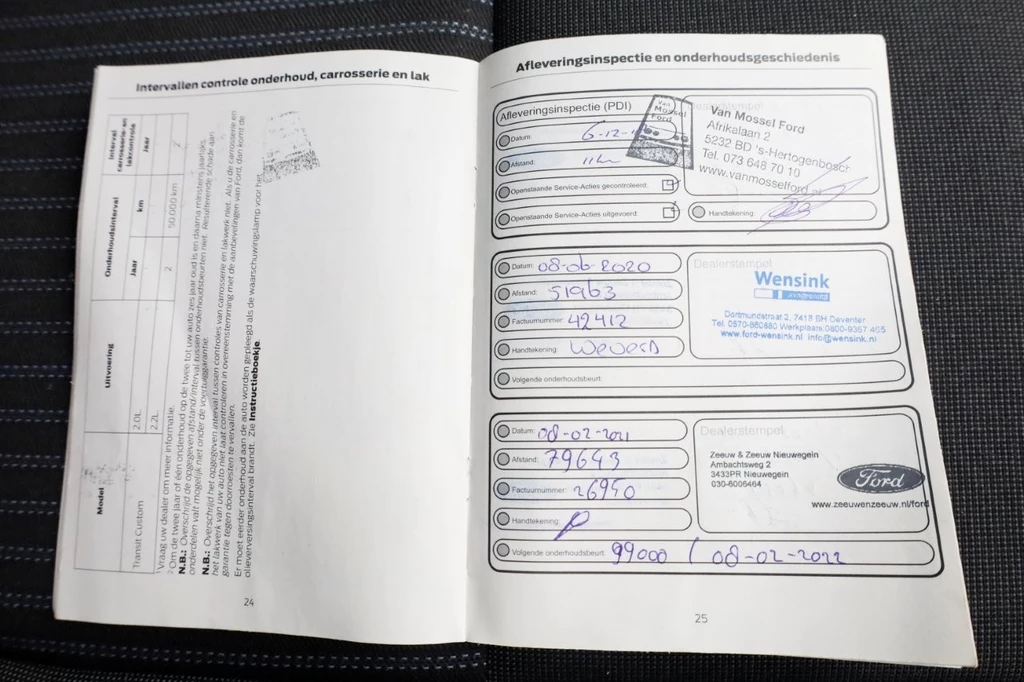 Intervallen controle onderhoud, carrosserie en lak
Model
Uitvoering
Onderhoudsinterval
Interval carrosserie- en lakcontrole
Jaar
km
Jaar
Transit Custom
2.0L
2
50.000 km
2.2L
¹ Vraag uw dealer om meer informatie.
N.B.: Overschrijd de opgegeven afstand/interval tussen onderhoudsbeurten niet. Resulterende schade aan
onderdelen valt mogelijk niet onder de voertuiggarantie.
N.B.: Overschrijd het opgegeven interval tussen controles van carrosserie en lakwerk niet. Als u de carrosserie en
het lakwerk van uw auto niet laat controleren in overeenstemming met de aanbevelingen van Ford, dan komt de
garantie tegen doorroesten te vervallen.
Er moet eerder onderhoud aan de auto worden gepleegd als de waarschuwingslamp voor het
olieverversingsinterval brandt. Zie Instructieboekje.
24
Afleveringsinspectie en onderhoudsgeschiedenis
Afleveringsinspectie (PDI)
Datum: 6-12-
Afstand:
Openstaande Service-Acties gecontroleerd:
Openstaande Service-Acties uitgevoerd:
Van Mossel Ford
Van Mossel Ford
Afrikalaan 2
5232 BD 's-Hertogenbosch
Tel. 073 648 70 10
www.vanmosselford.nl
Handtekening:
Datum: 08-06-2020
Afstand: 51963
Factuurnummer: 42412
Handtekening:
Volgende onderhoudsbeurt:
Dealerstempel
Wensink
Dortmundstraat 2, 7418 BH Deventer
Tel. 0570-860880 Werkplaats:0800-9367 465
www.ford-wensink.nl info@wensink.nl
Datum: 08-02-2021
Afstand: 79643
Factuurnummer: 26950
Handtekening:
Volgende onderhoudsbeurt: 99000 / 08-02-2022
Dealerstempel
Zeeuw & Zeeuw Nieuwegein
Ambachtsweg 2
3433PR Nieuwegein
030-6006464
Ford
www.zeeuwenzeeuw.nl/ford
25